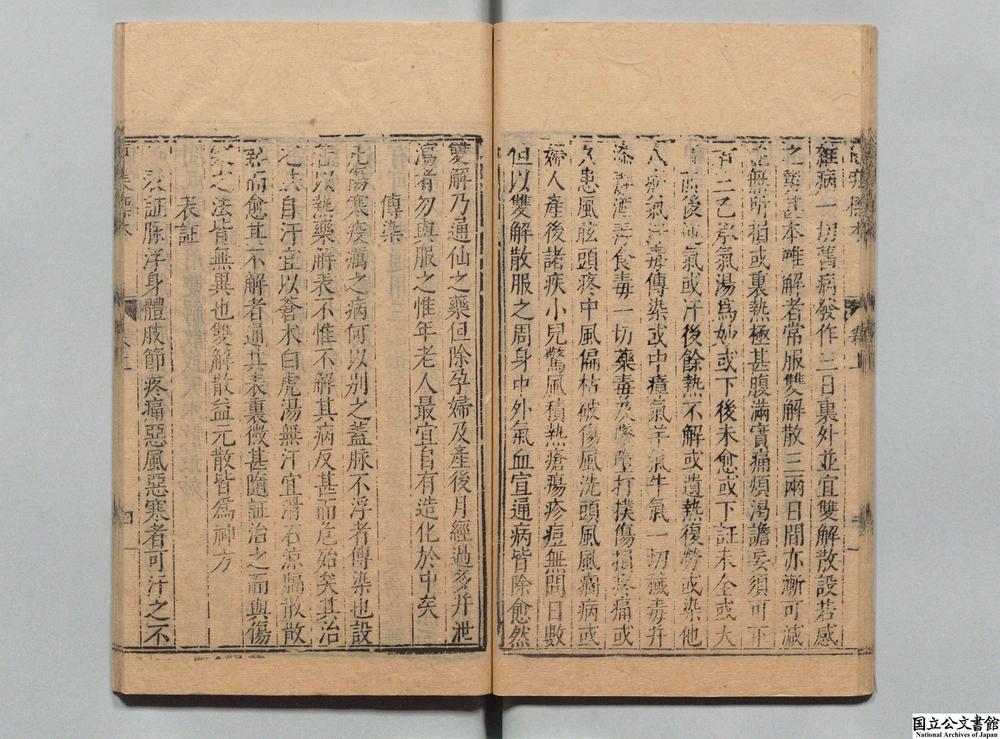 雜病一切舊病發作三日裏外並宜雙解散設若感
之勢甚本難解者常服雙解散三兩日間亦漸可減
並無所損或裏熱極甚腹滿實痛煩渴譫妄須可下
者三乙承氣湯爲妙或下後未愈或下証未全或大
後 氣或汗後餘熱不解或遺熱復勞或染他
人病氣汗毒傳染或中瘴氣羊氣牛氣一切穢毒并
漆毒酒毒食毒一切藥毒及墜墮打撲傷損疼痛或
久患風眩頭疼中風偏枯破傷風洗頭風風癇病或
婦人產後諸疾小兒驚風積熱瘡瘍疹痘無問日數
但以雙解散服之周身中外氣血宣通病皆除愈然
雙解乃通仙之藥但除孕婦及產後月經過多并泄
瀉者勿與服之惟年老人最宜自有造化於中矣
傳染
凡傷寒疫癘之病何以別之蓋脉不浮者傳染也設
若以熱藥解表不惟不解其病反甚而危殆矣其治
之法自汗宜以蒼朮白虎湯無汗宜滑石凉膈散散
熱而愈其不解者通其表裏微甚隨証治之而與傷
寒之法皆無異也雙解散益元散皆爲神方
表証
表証脉浮身體肢節疼痛惡風惡寒者可汗之不
国立公文書館
National Archives of Japan